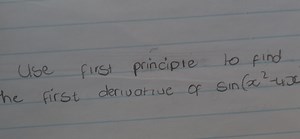 Use first principle to find
he first derivative of sin(x²-4x